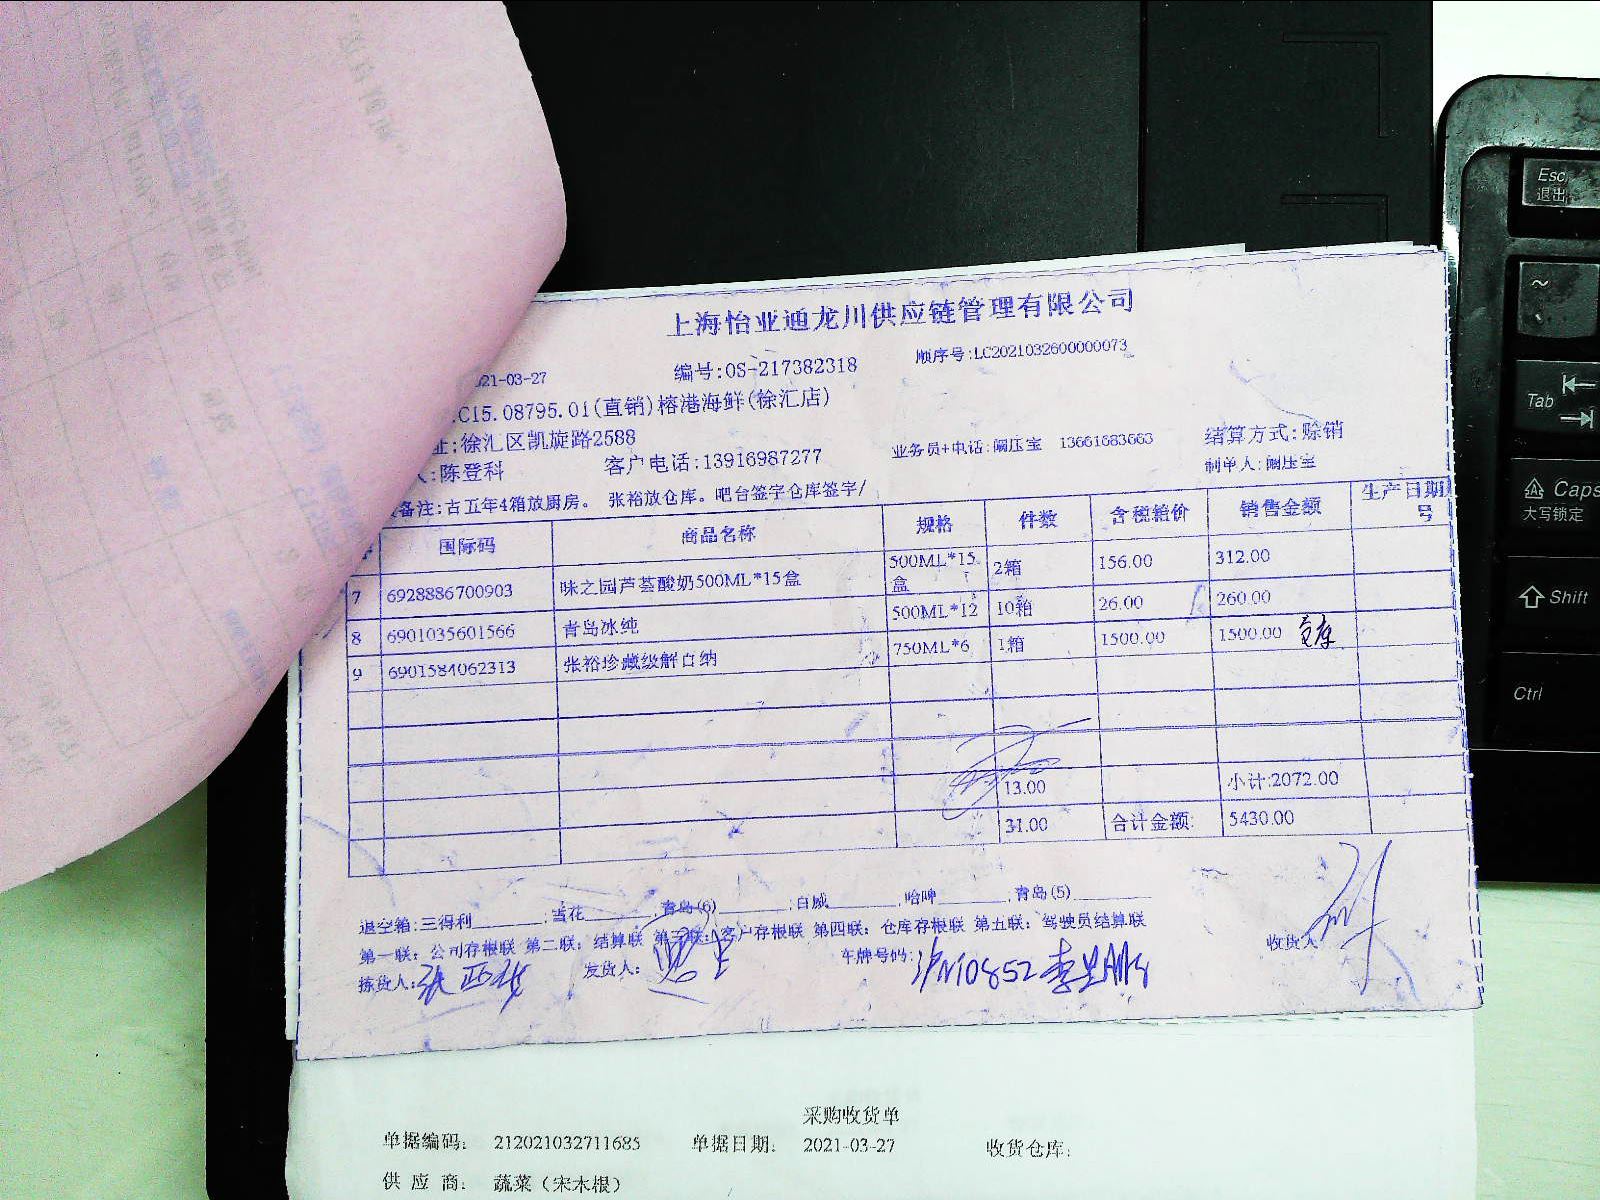 上海怡亚通龙川供应链管理有限公司
021-03-27 编号:OS-217382318 顺序号:LC2021032600000073
.C15.08795.01(直销)榕港海鲜(徐汇店)
址:徐汇区凯旋路2588 业务员+电话:阚压宝 13661683663 结算方式:赊销
人:陈登科 客户电话:13916987277 制单人:阚压宝
备注:古五年4箱放厨房。 张裕放仓库。吧台签字仓库签字/
国际码 商品名称 规格 件数 含税箱价 销售金额 生产日期 号
7 6928886700903 味之园芦荟酸奶500ML*15盒 500ML*15盒 2箱 156.00 312.00
8 6901035601566 青岛冰纯 500ML*12 10箱 26.00 260.00
9 6901584062313 张裕珍藏级解百纳 750ML*6 1箱 1500.00 1500.00
13.00 小计:2072.00
31.00 合计金额: 5430.00
退空箱:三得利 ;雪花 ;青岛(6) ;百威 ;哈啤 ;青岛(5)
第一联: 公司存根联 第二联: 结算联 第三联: 客户存根联 第四联: 仓库存根联 第五联: 驾驶员结算联
拣货人: 发货人: 车牌号码: 收货人
采购收货单
单据编码: 212021032711685 单据日期: 2021-03-27 收货仓库:
供 应 商: 蔬菜（宋木根）
Esc
退出
~
Tab
Caps
大写锁定
Shift
Ctrl